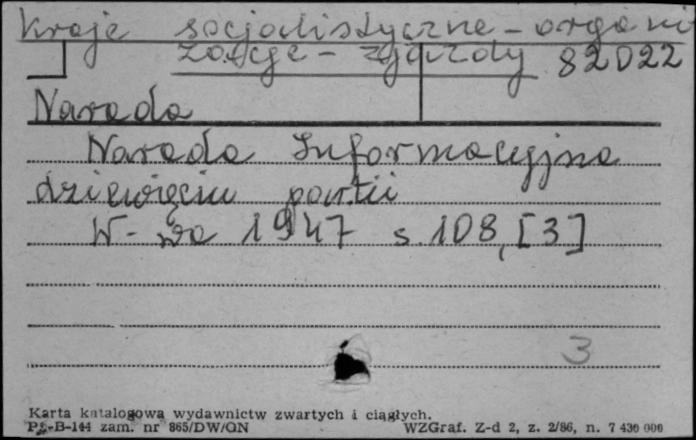 Kraje socjalistyczne - organi
zacje - zjazdy 82022
Narada
Narada Informacyjna
dziewięciu partii
W-wa 1947 s. 108, [3]
3
Karta katalogowa wydawnictw zwartych i ciągłych.
Pz-B-144 zam. nr 865/DW/ON WZGraf. Z-d 2, z. 2/86, n. 7 430 000